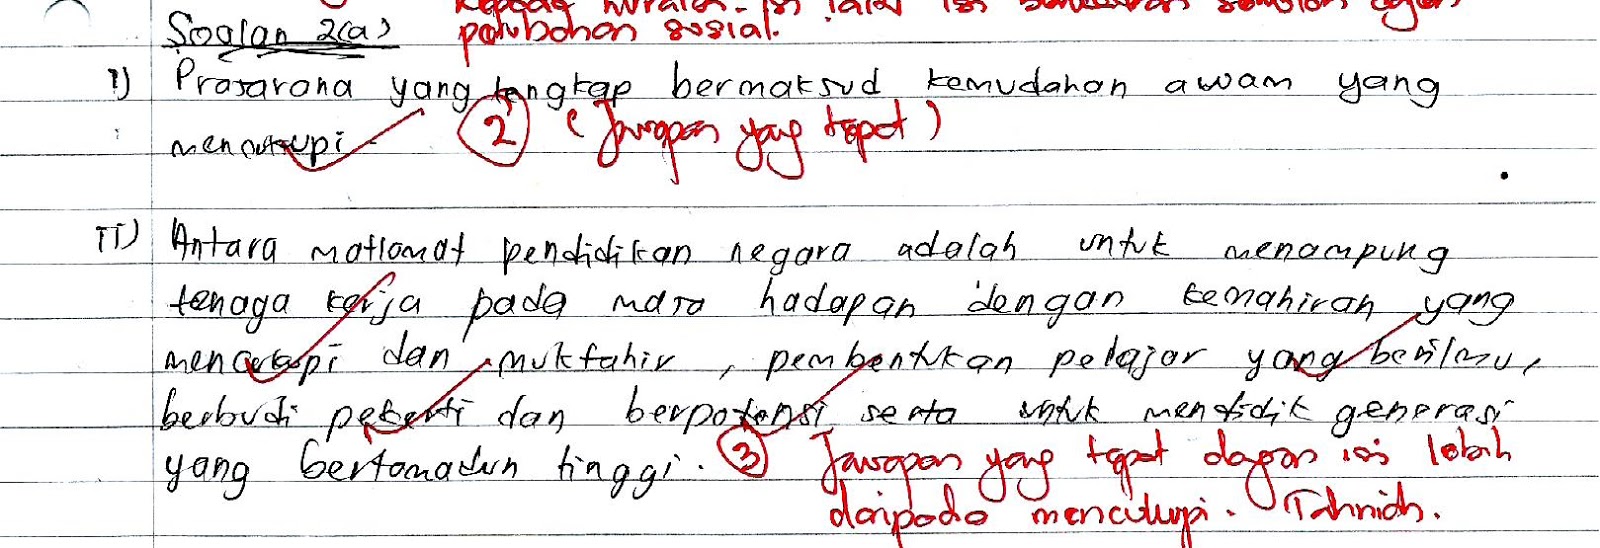 Soalan 2(a)
perubahan sosial.
I) Prasarana yang lengkap bermaksud kemudahan awam yang
mencukupi.
2 (Jawapan yang tepat)
II) Antara matlamat pendidikan negara adalah untuk menampung
tenaga kerja pada masa hadapan dengan kemahiran yang
mencukupi dan muktahir, pembentukan pelajar yang berilmu,
berbudi pekerti dan berpotensi serta untuk mendidik generasi
yang bertamadun tinggi. 3 Jawapan yang tepat dengan isi lebih
daripada mencukupi. Tahniah.